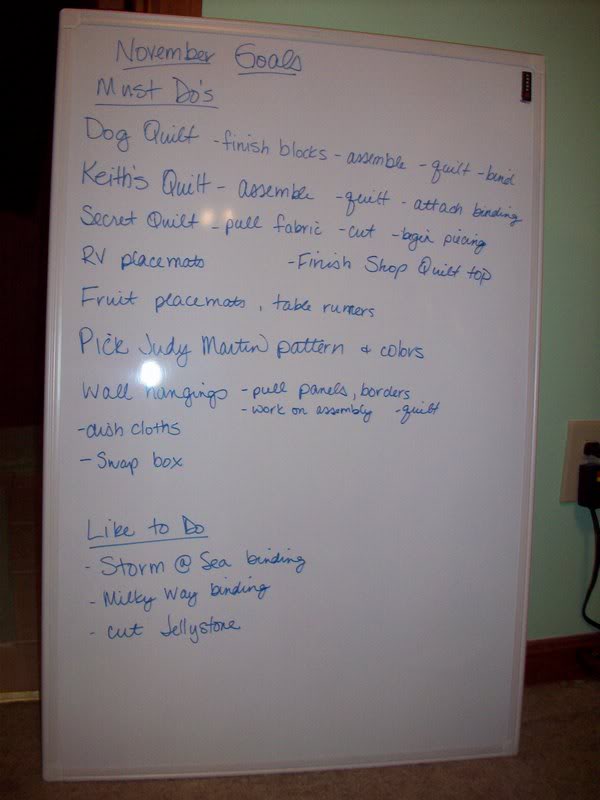 November Goals
Must Do's
Dog Quilt - finish blocks - assemble - quilt - bind
Keith's Quilt - assemble - quilt - attach binding
Secret Quilt - pull fabric - cut - begin piecing
RV placemats - Finish Shop Quilt top
Fruit placemats, table runners
Pick Judy Martin pattern & colors
Wall hangings - pull panels, borders
- work on assembly - quilt
- dish cloths
- Swap box
Like to Do
- Storm @ Sea binding
- Milky Way binding
- cut Jellystone